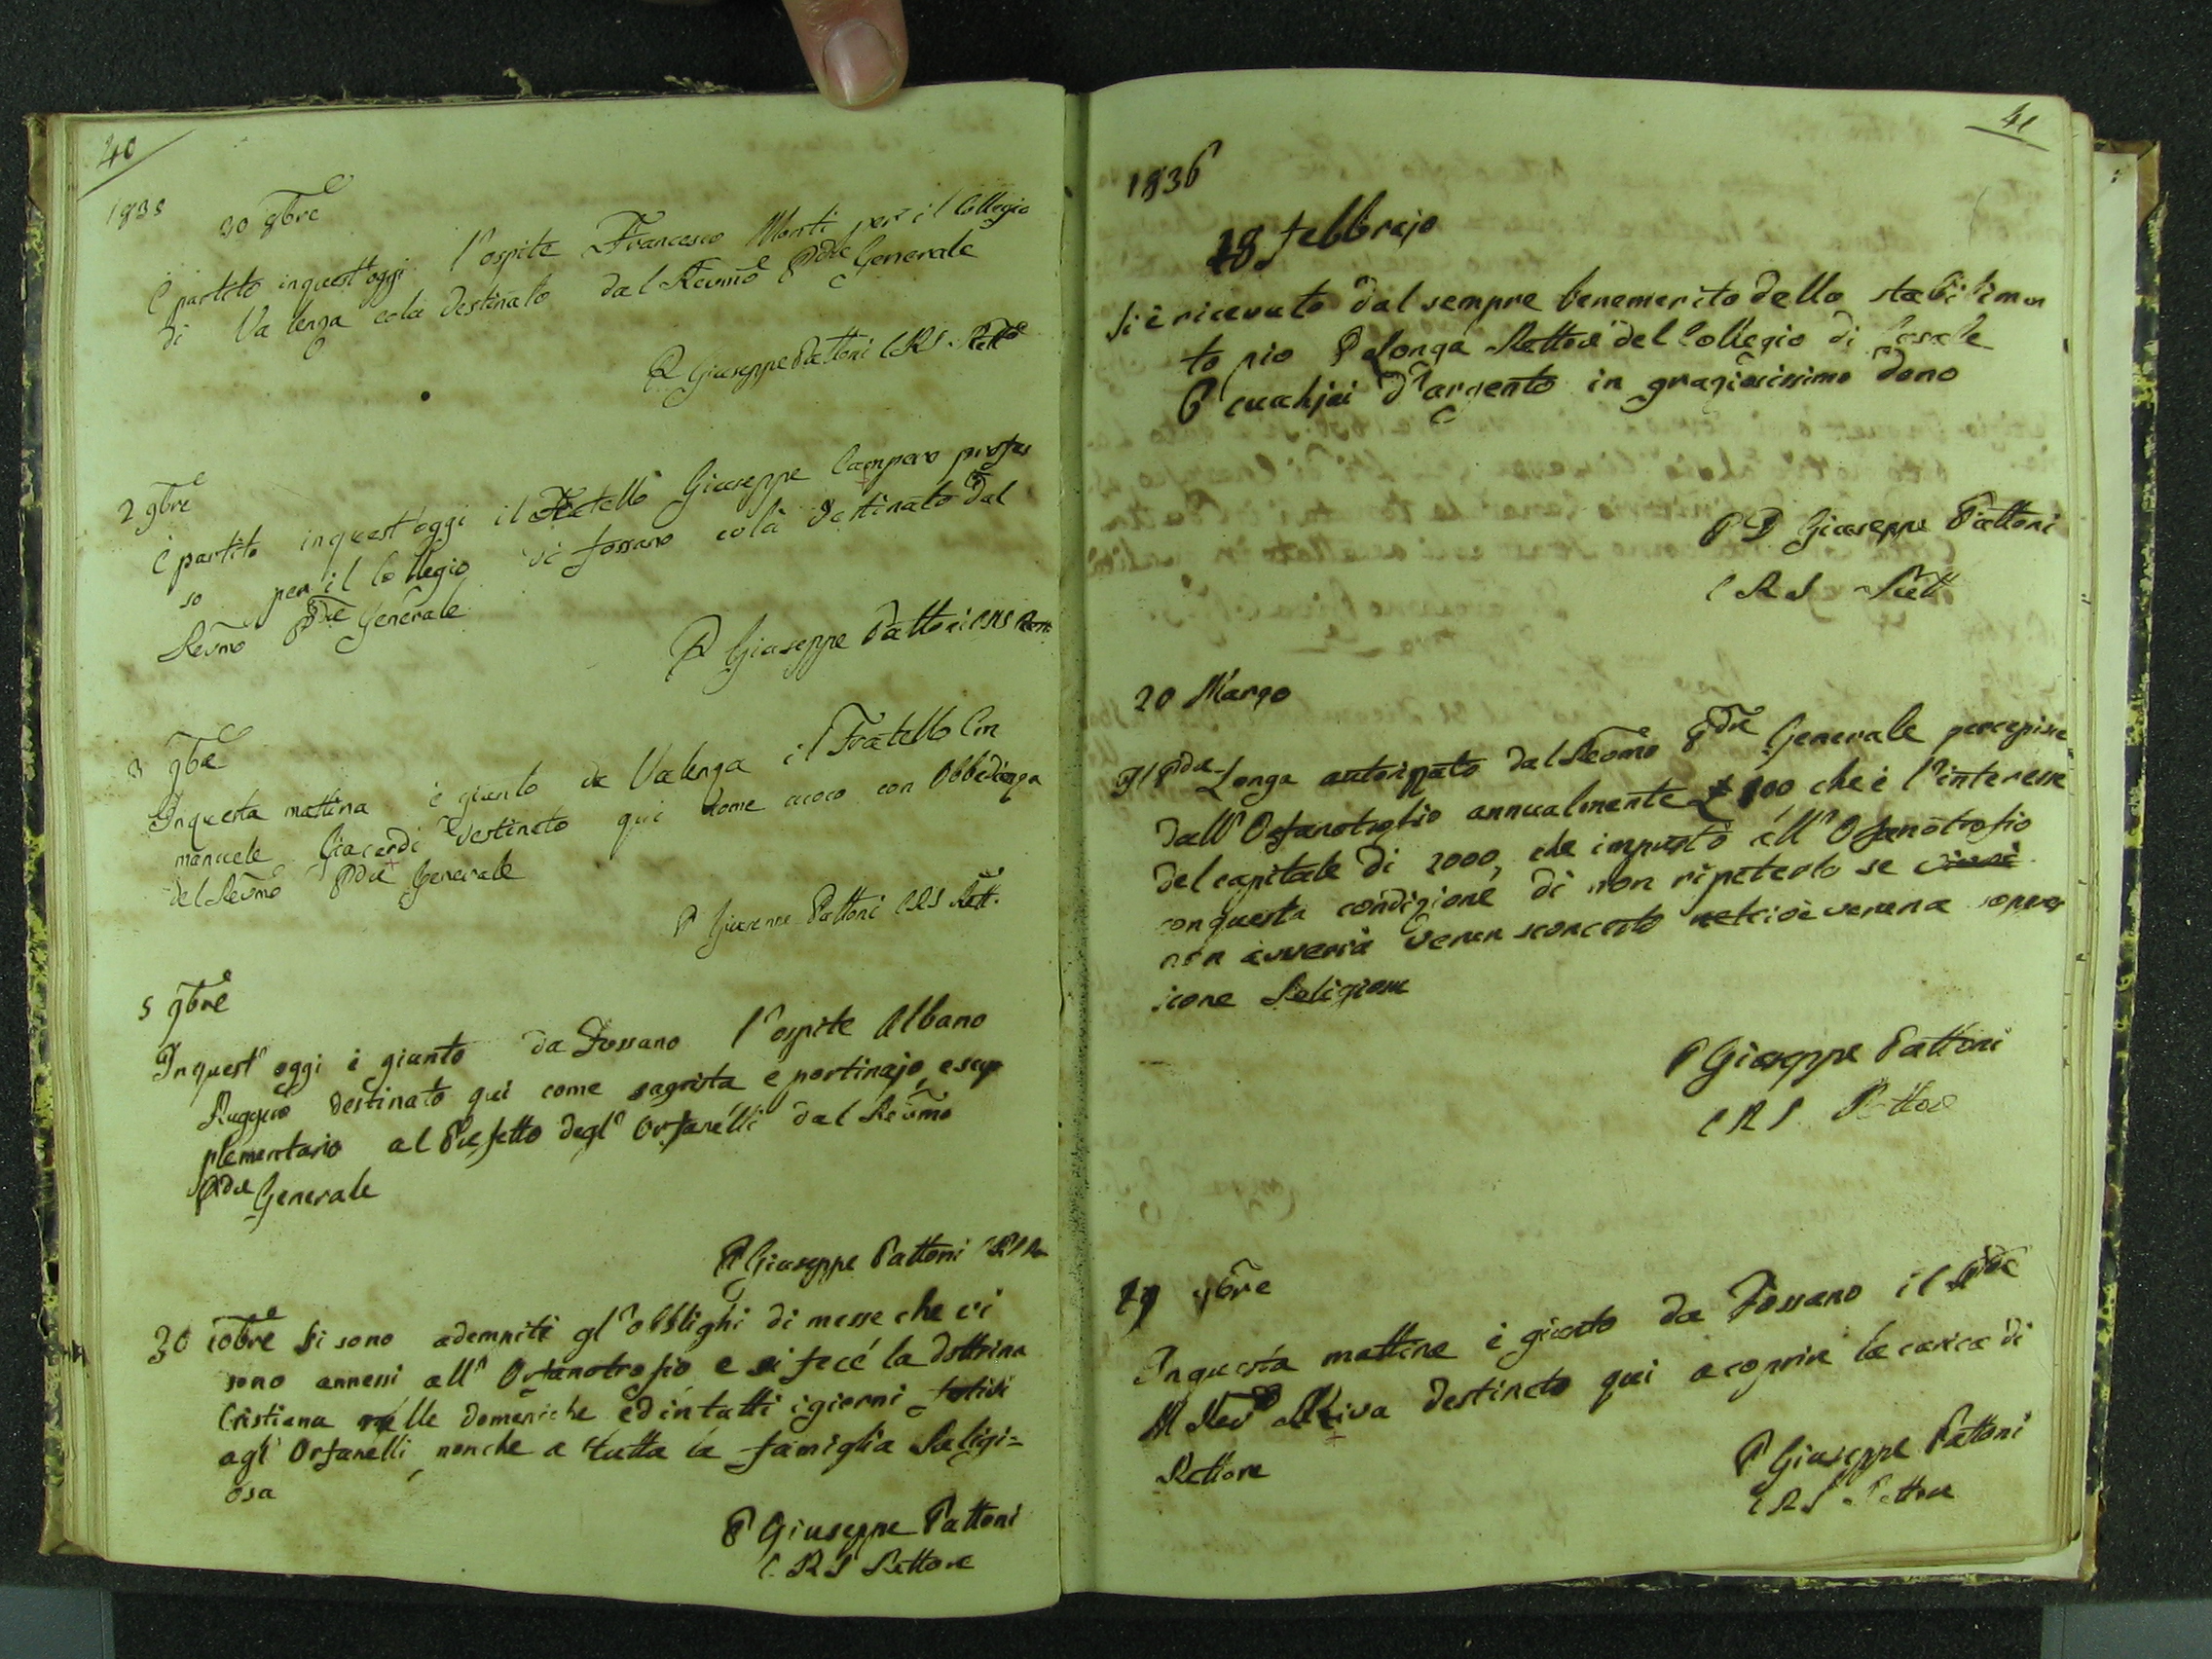 40
1835
30 9bre
È partito inquest'oggi l'ospite Francesco Monti per il Collegio
di Valenza colà destinato dal Revmo Pdre Generale
P Giuseppe Pattoni CRS Rett
2 9bre
È partito inquest'oggi il Fratello Giuseppe Campero profes
so per il Collegio di Fossano colà destinato dal
Revmo Pdre Generale
P Giuseppe Pattoni CRS Rett
3 9bre
Inquesta mattina è giunto da Valenza il Fratello Em
manuele Giacardi destinato qui come cuoco con Obbedienza
del Revmo Pdre Generale
P Giuseppe Pattoni CRS Rett.
5 9bre
Inquest'oggi è giunto da Fossano l'ospite Albano
Ruggero destinato qui come sagrista e portinajo, e sup
plementario al Prefetto degl'Orfanelli dal Revmo
Pdre Generale
P Giuseppe Pattoni CRS
30 10bre Si sono adempiti gl'obblighi di messe che vi
sono annessi all'Orfanotrofio e si fece la dottrina
Cristiana nelle domeniche ed in tutti i giorni festivi
agli Orfanelli, nonche a tutta la famiglia Religi=
osa
P Giuseppe Pattoni
C. R S Rettore
41
1836
28 febbrajo
Si è ricevuto dal sempre benemerito dello stabilimen
to pio P Longa Rettore del Collegio di Casale
6 cuchjai d'argento in graziosissimo dono
P D Giuseppe Pattoni
C R S Rett
20 Marzo
Il Pdre Longa autorizzato dal Revmo Pdre Generale percepisce
dall'Orfanotrofio annualmente £ 100 che è l'interesse
del capitale di 2000, che impresto all'Orfanotrofio
conquesta condizione di non ripeterlo se
non avverrà verun sconcerto cioè veruna soppres
sione Religiosa
P Giuseppe Pattoni
C R S Rettore
29 9bre
Inquesta mattina è giunto da Fossano il Pdre
M Rev Riva destinato qui a coprire la carica di
Rettore
P Giuseppe Pattoni
C R S Rettore